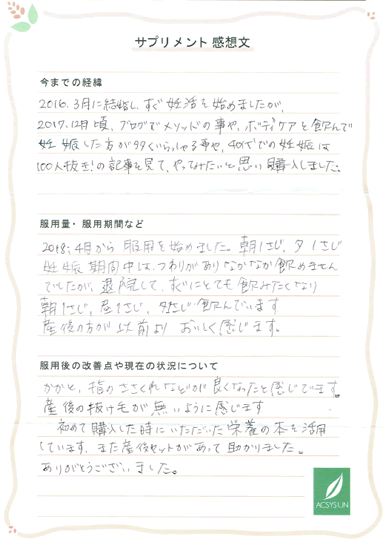 サプリメント 感想文
今までの経緯
2016.3月に結婚し、すぐ妊活を始めましたが、
2017.12月頃、ブログでメソッドの事や、ボディケアと飲んで
妊娠した方が多くいらっしゃる事や、40代での妊娠は
100人抜き!の記事を見て、やってみたいと思い購入しました。
服用量・服用期間など
2018.4月から服用を始めました。朝1さじ、夕1さじ
妊娠期間中は、つわりがありなかなか飲めません
でしたが、退院して、すぐにとても飲みたくなり
朝1さじ、昼1さじ、夕1さじ飲んでいます
産後の方が以前より おいしく感じます。
服用後の改善点や現在の状況について
かかと、指のささくれなどが良くなったと感じています。
産後の抜け毛が無いように感じます
初めて購入した時にいただいた栄養の本を活用
しています。また産後セットがあって助かりました。
ありがとうございました。
ACSYSUN